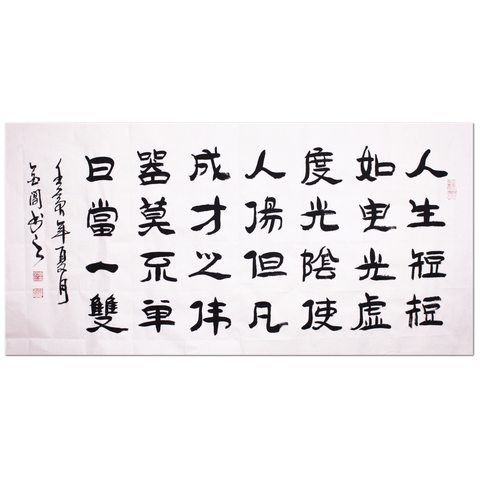 人生短短
如电光虚
度光陰使
人傷但凡
成才之伟
器莫不单
日當一雙
壬寅年夏月
书之